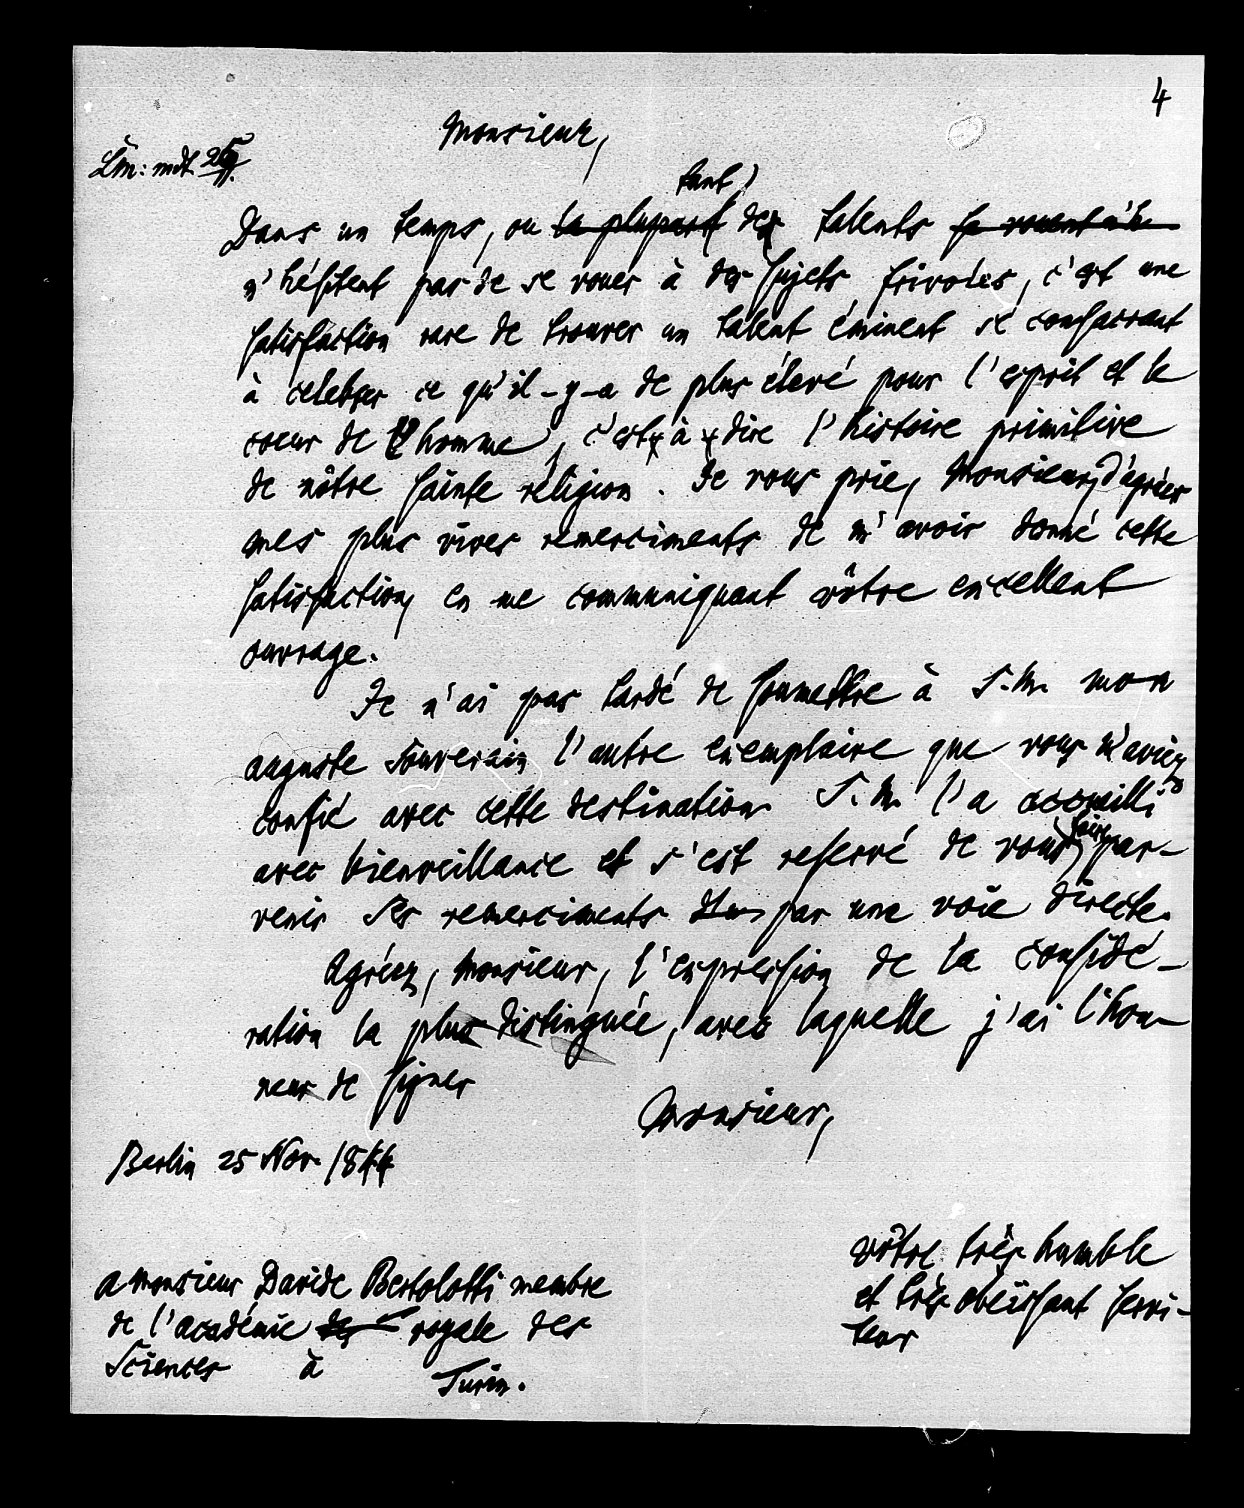 4
Monsieur,
tant
Dans un temps, ou la plupart des talents se vouent à
n'hésitent pas de se vouer à des sujets frivoles, c'est une
satisfaction rare de trouver un talent éminent se consacrant
à celebrer ce qu'il-y-a de plus élevé pour l'esprit et le
coeur de l'homme, c'est à dire l'histoire primitive
de nôtre sainte réligion. Je vous prie, Monsieur, d'agréer
mes plus vives remerciments de m'avoir donné cette
satisfaction, en me communiquant vôtre excellent
ouvrage.
Je n'ai pas tardé de soumettre à S.M. mon
auguste Souverain l'autre exemplaire que vous m'aviez
confié avec cette destination. S.M. l'a accueilli
faire
avec bienveillance et s'est reservé de vous par-
venir Ses remerciments par une voie directe.
Agréez, Monsieur, l'expression de la considé-
ration la plus distinguée, avec laquelle j'ai l'hon-
neur de signer
Monsieur,
Berlin 25 Nov. 1844
vôtre très humble
et très obéissant servi-
teur
A Monsieur Davide Bertolotti membre
de l'académie des royale des
Sciences à
Turin.